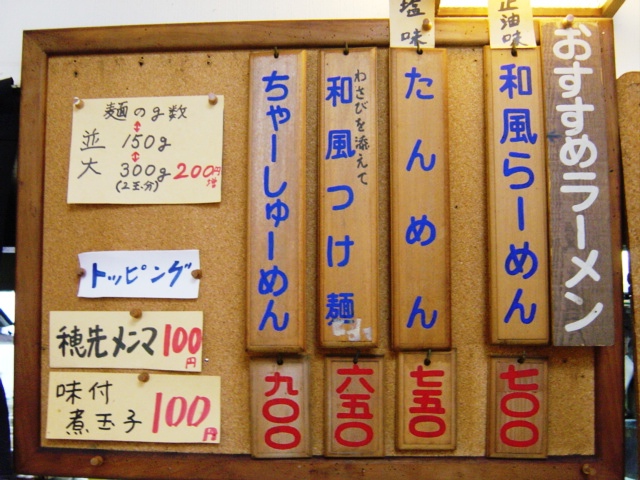 おすすめラーメン
正油味
和風らーめん
七〇〇
塩味
たんめん
七五〇
わさびを添えて
和風つけ麺
六五〇
ちゃーしゅーめん
九〇〇
麺のg数
並 150g
大 300g 200円増
(2玉分)
トッピング
穂先メンマ 100円
味付
煮玉子 100円